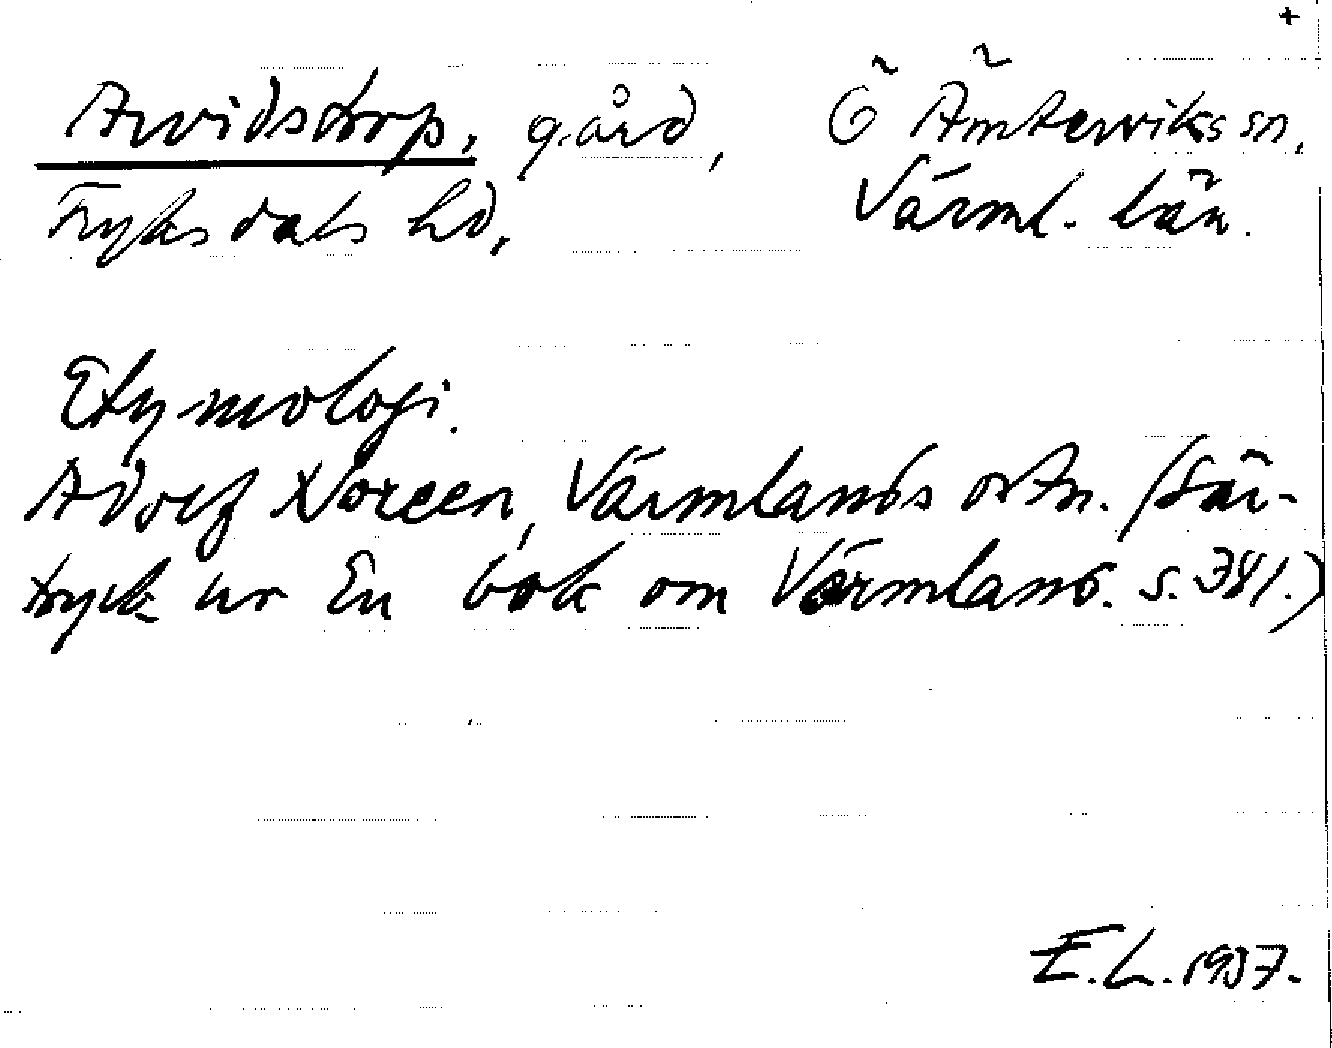 +
Arvidstorp, gård, Ö Ämterviks sn,
Fryksdals hd, Värml. län.
Etymologi.
Adolf Noreen, Värmlands ortn. (Sär-
tryck ur En bok om Värmland. s. 381.)
E.L. 1937.